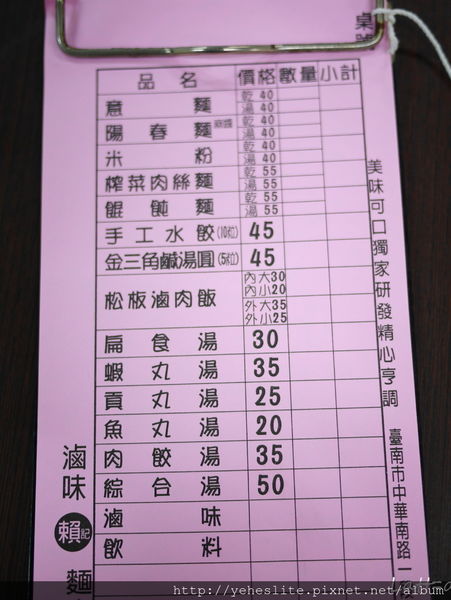 桌
品名 價格 數量 小計
意麵 乾 40
湯 40
陽春麵 麻醬 乾 40
湯 40
米粉 乾 40
湯 40
榨菜肉絲麵 乾 55
湯 55
餛飩麵 乾 55
湯 55
手工水餃(10粒) 45
金三角鹹湯圓(5粒) 45
松板滷肉飯 內大30
內小20
外大35
外小25
扁食湯 30
蝦丸湯 35
貢丸湯 25
魚丸湯 20
肉餃湯 35
綜合湯 50
滷味
飲料
美味可口獨家研發精心亨調
臺南市中華南路一
滷味 賴記 麵
http://yeheslite.pixnet.net/album